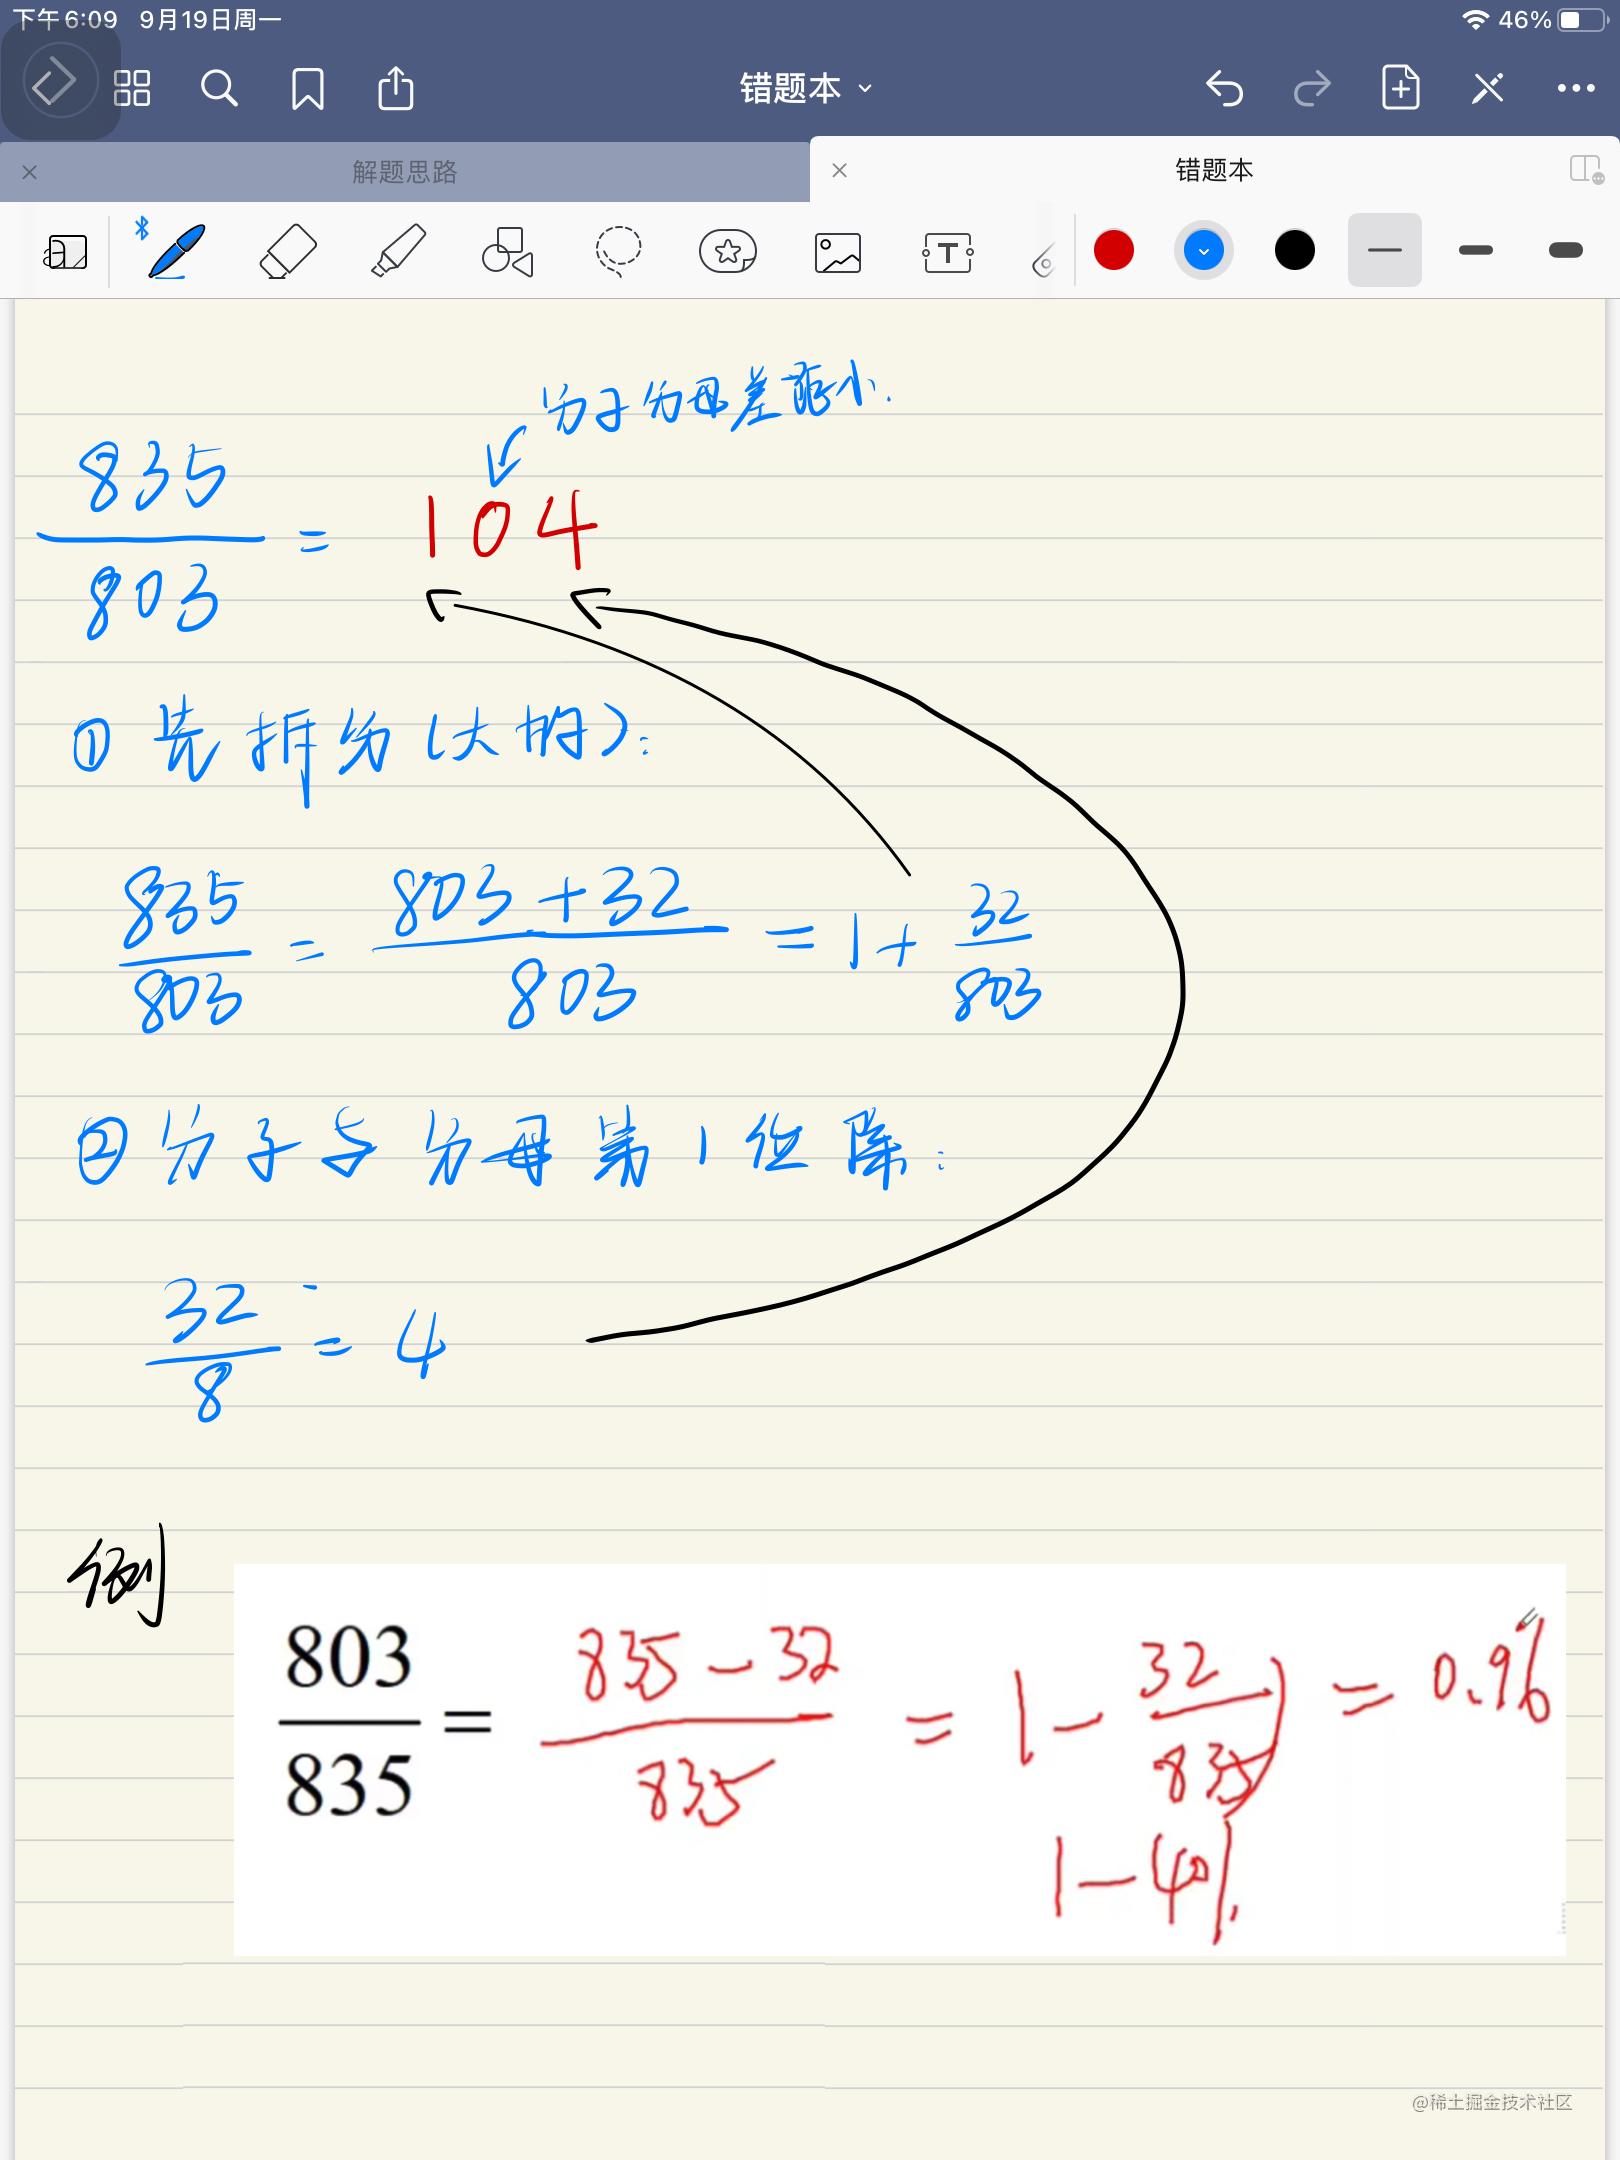 下午6:09 9月19日周一 46%
错题本
解题思路 错题本
分子分母差距小.
835/803 = 104
① 先拆分(大的):
835/803 = 803+32/803 = 1+ 32/803
② 分子与分母第1位除:
32/8 = 4
例
803/835 = 835-32/835 = 1- 32/835 = 0.96
1-4%
@稀土掘金技术社区